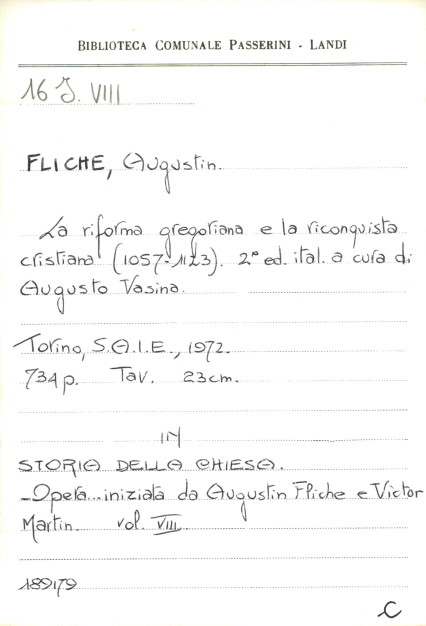 BIBLIOTECA COMUNALE PASSERINI - LANDI
16 J. VIII
FLICHE, Augustin.
La riforma gregoriana e la riconquista
cristiana (1057-1123). 2ª ed. ital. a cura di
Augusto Vasina.
Torino, S.A.I.E., 1972.
734 p. Tav. 23cm.
IN
STORIA DELLA CHIESA.
-Opera...iniziata da Augustin Fliche e Victor
Martin. vol. VIII.
189179
C